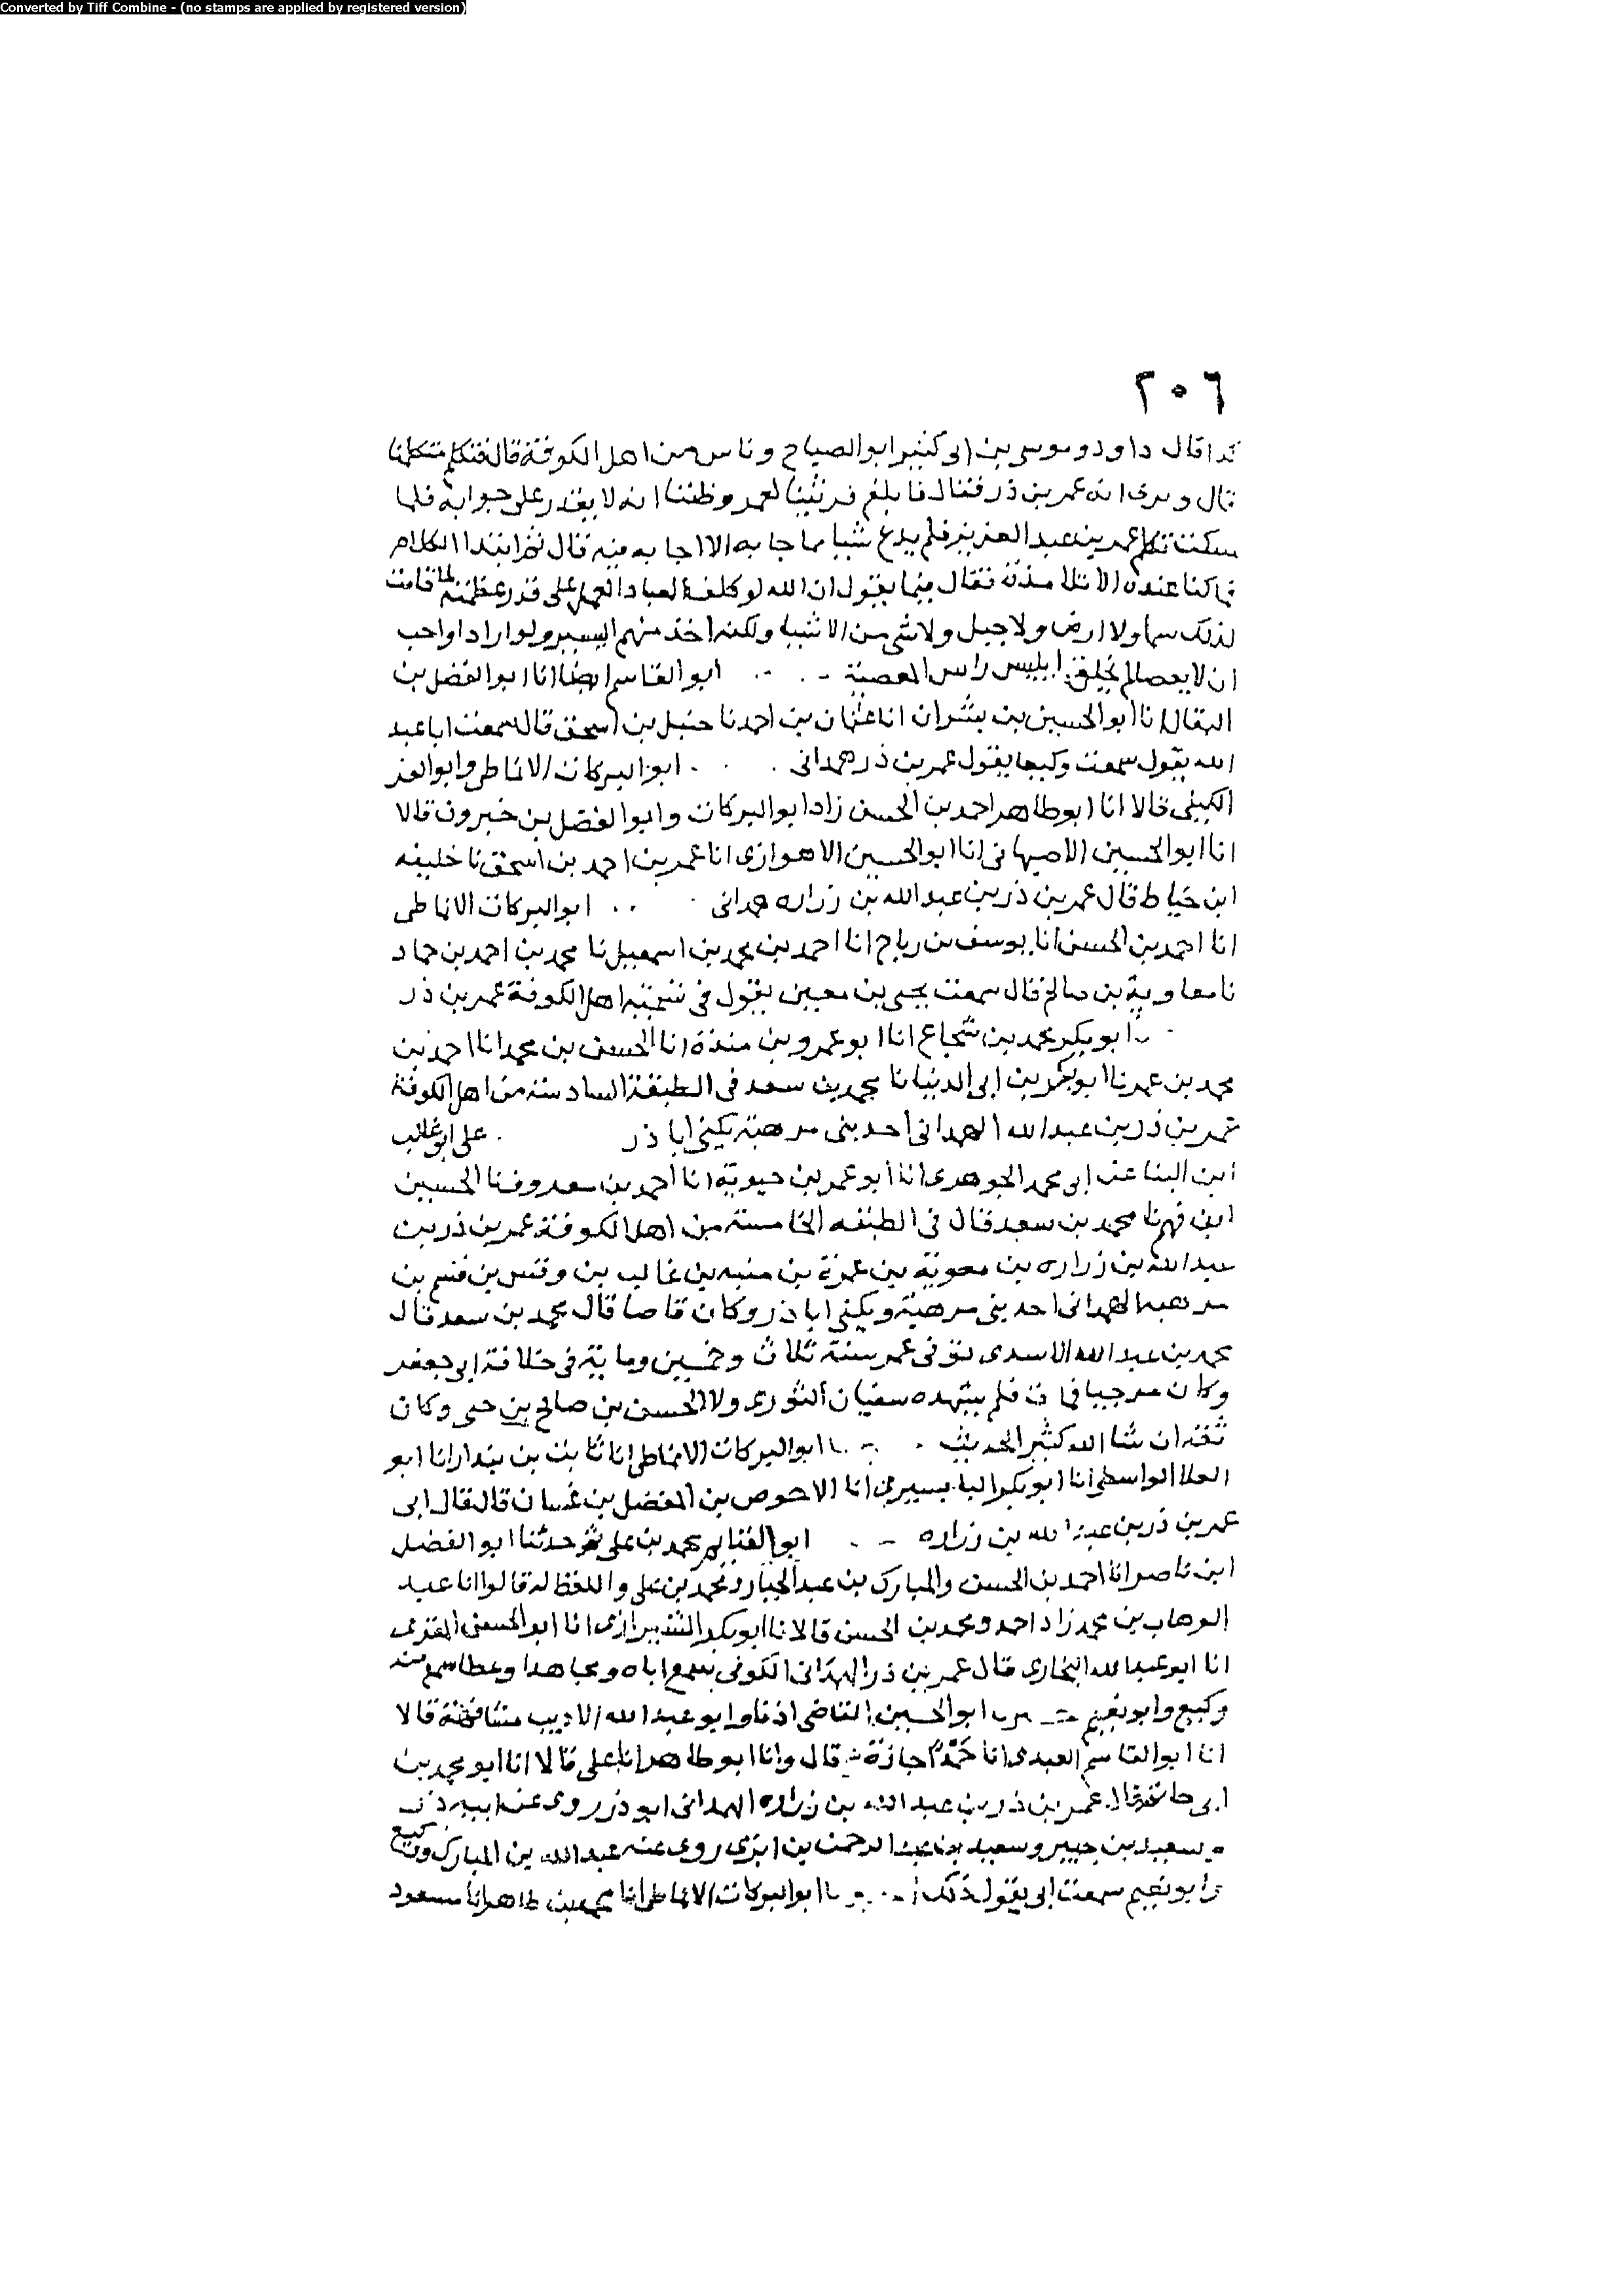 Converted by Tiff Combine - (no stamps are applied by registered version)
٢٠٦
قال داود وموسى بن ابى كثير ابو الصباح وناس من اهل الكوفة قال فتكلم متكلمنا
قال ونرى انه عمر بن ذر فقال فابلغ فرثينا لعمر وظننا انه لا يقدر على جوابه فلما
سكت تكلم عمر بن عبد العزيز فلم يدع شيا مما جا به الا اجا به فيه قال ثم ابتدا الكلام
فما كنا عنده الا تلامذة فقال فيما يقول ان الله لو كلف العباد العمل على قدر عظمته لما قامت
لذلك سما ولا ارض ولا جبل ولا شى من الاشيا ولكنه اخذ منهم اليسير ولو اراد او احب
ان لا يعصا لم يخلق ابليس راس المعصية ابو القاسم ايضا انا ابو الفضل بن
البقال انا ابو الحسين بن بشران انا عثمان بن احمد نا حنبل بن اسحق قال سمعت ابا عبد
الله يقول سمعت وكيعا يقول عمر بن ذر همدانى ابو البركات الانماطى وابو العز
الكيلى قالا انا ابو طاهر احمد بن الحسن زاد ابو البركات وابو الفضل بن خيرون قالا
انا ابو الحسين الاصبهانى انا ابو الحسين الاهوازى انا عمر بن احمد بن اسحق نا خليفه
ابن خياط قال عمر بن ذر بن عبد الله بن زراره همدانى ابو البركات الانماطى
انا احمد بن الحسن انا يوسف بن رباح انا احمد بن محمد بن اسمعيل نا محمد بن احمد بن حماد
نا معاوية بن صالح قال سمعت يحيى بن معين يقول فى تسمية اهل الكوفة عمر بن ذر
ابو بكر محمد بن شجاع انا ابو عمرو بن مندة انا الحسن بن محمد انا احمد بن
محمد بن عمر نا ابو بكر بن ابى الدنيا نا محمد بن سعد فى الطبقة السادسة من اهل الكوفة
عمر بن ذر بن عبد الله الهمدانى احد بنى مرهبة يكنى ابا ذر على ابو غالب
ابن البنا عن ابى محمد الجوهرى انا ابو عمر بن حيوية انا احمد بن معروف نا الحسين
ابن فهم نا محمد بن سعد قال فى الطبقه الخامسة من اهل الكوفة عمر بن ذر بن
عبد الله بن زراره بن معوية بن عمرة بن منبه بن غالب بن وقش بن قشم بن
مرهبه الهمدانى احد بنى مرهبة ويكنى ابا ذر وكان قاصا قال محمد بن سعد قال
محمد بن عبد الله الاسدى توفى عمر سنة ثلاث وخمسين وماية فى خلافة ابى جعفر
وكان مرجيا فمات فلم يشهده سفيان الثورى ولا الحسن بن صالح بن حى وكان
ثقة ان شا الله كثير الحديث ابو البركات الانماطى انا ثابت بن بندار انا ابو
العلا الواسطى انا ابو بكر البابسيرى انا الاحوص بن المفضل بن غسان قال قال ابى
عمر بن ذر بن عبد الله بن زراره ابو الغنايم محمد بن على ثم حدثنا ابو الفضل
ابن ناصر انا احمد بن الحسن والمبارك بن عبد الجبار ومحمد بن على واللفظ له قالوا انا عبد
الوهاب بن محمد زاد احمد ومحمد بن الحسن قالا انا ابو بكر الشيرازى انا ابو الحسن المقرى
انا ابو عبد الله البخارى قال عمر بن ذر الهمدانى الكوفى سمع اباه ومجاهدا وعطا سمع منه
وكيع وابو نعيم ابو الحسين القاضى اذنا وابو عبد الله الاديب مشافهة قالا
انا ابو القاسم العبدى انا حمد اجازة قال وانا ابو طاهر انا على قالا انا ابو محمد بن
ابى حاتم قال عمر بن ذر بن عبد الله بن زراره الهمدانى ابو ذر روى عن ابيه ذر
وسعيد بن جبير وسعيد بن عبد الرحمن بن ابزى روى عنه عبد الله بن المبارك ووكيع
وابو نعيم سمعت ابى يقول ذلك ابو البركات الانماطى انا محمد بن طاهر انا مسعود